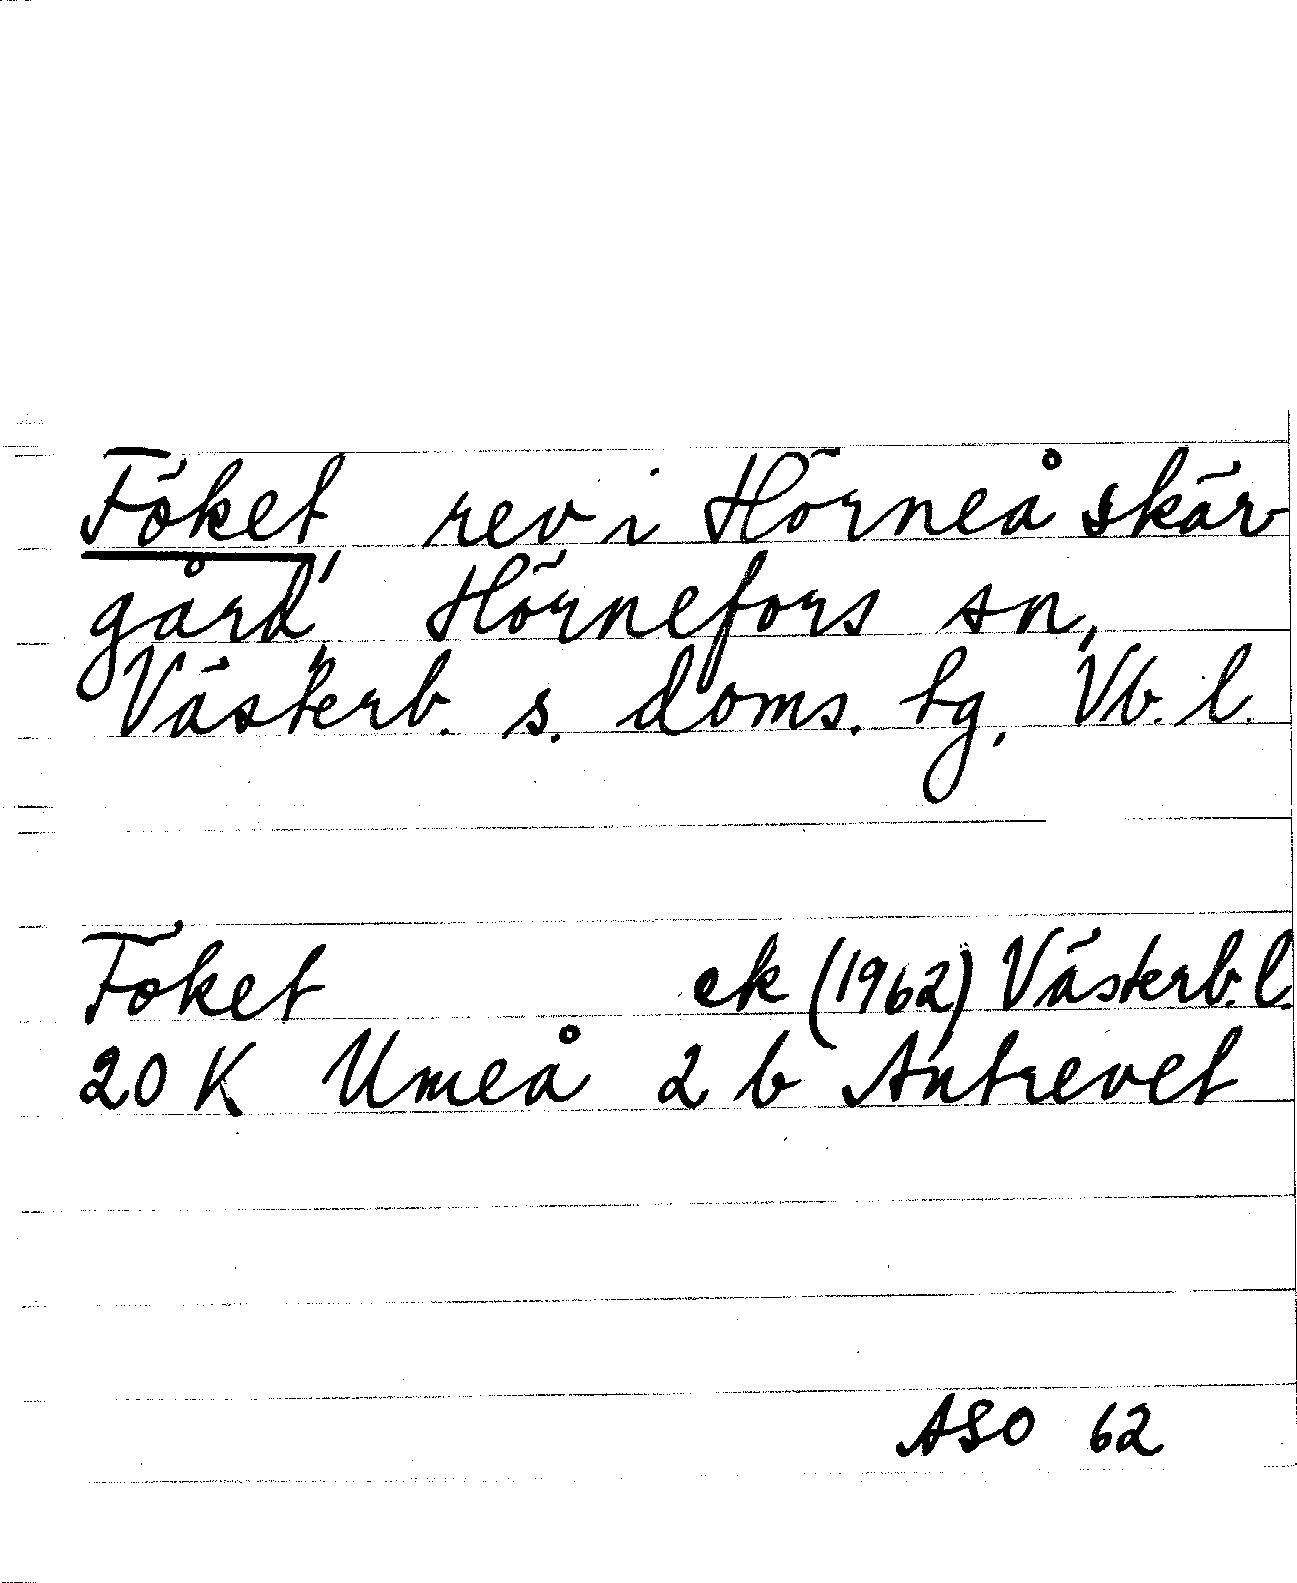 Föket, rev i Hörneå skär-
gård, Hörnefors sn,
Västerb. s. doms. tg, Vb. l.
Föket ek (1962) Västerb. l.
20 K Umeå 2 b Antrevet
ASO 62